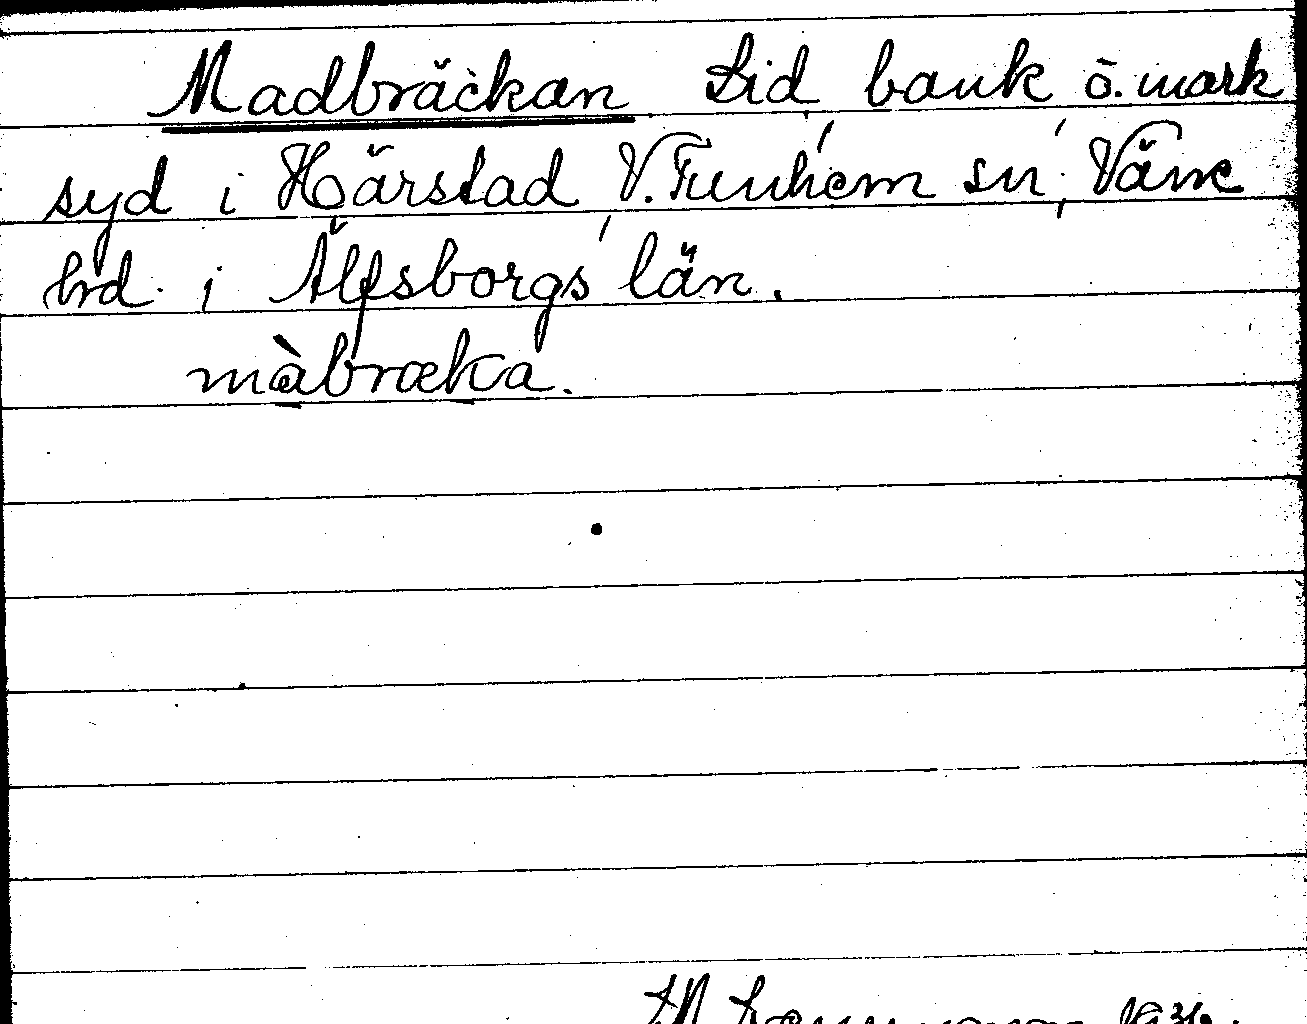 Madbräckan Lid, bank ö. mark
syd i Härstad, V. Tunhem sn, Väne
hd. i Älfsborgs län.
màbræka.